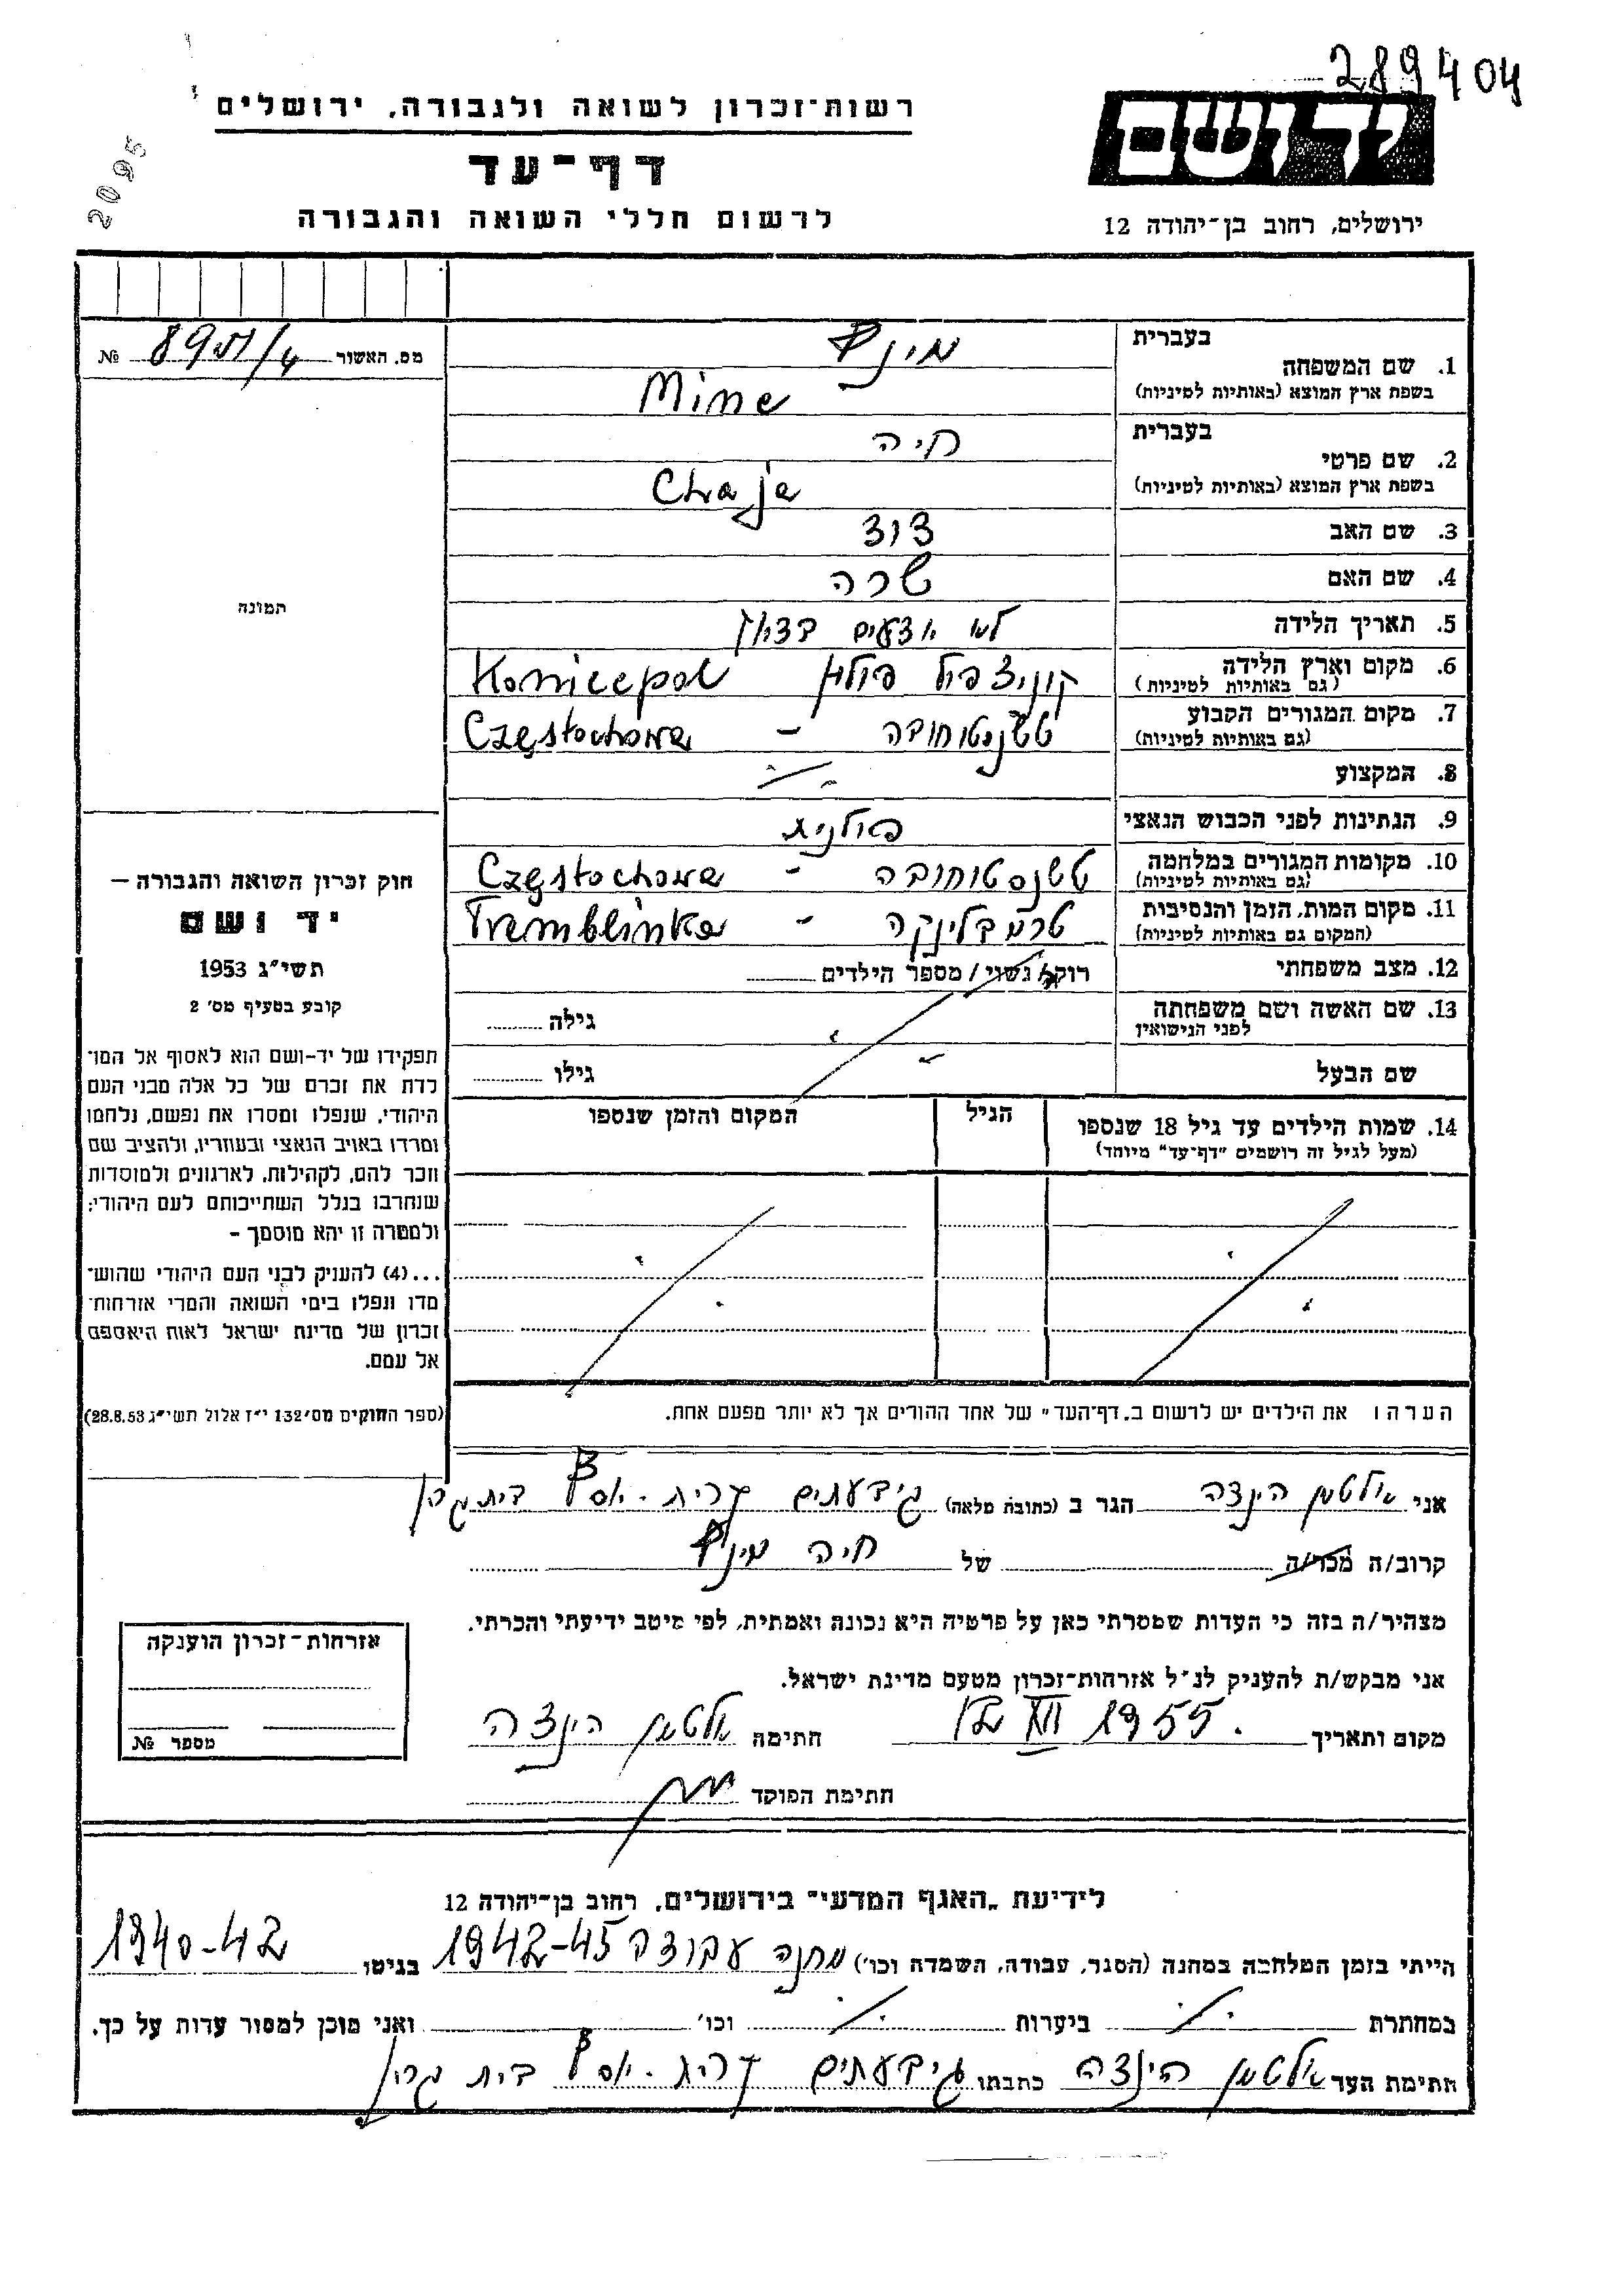 289404
רשות־זכרון לשואה ולגבורה, ירושלים
2095
דף־עד
יד ושם
לרשום חללי השואה והגבורה
ירושלים, רחוב בן־יהודה 12
מס. האשור № 
בעברית
1. שם המשפחה
בשפת ארץ המוצא (באותיות לטיניות) Mine
בעברית חיה
2. שם פרטי
בשפת ארץ המוצא (באותיות לטיניות) Chaja
3. שם האב דוד
4. שם האם שרה
תמונה
5. תאריך הלידה לא יודעים בדיוק
6. מקום וארץ הלידה קוניצפול פולין Konicepol
(גם באותיות לטיניות)
7. מקום המגורים הקבוע טשנסטוחובה - Częstochowa
(גם באותיות לטיניות)
8. המקצוע
9. הנתינות לפני הכבוש הנאצי פולנית
10. מקומות המגורים במלחמה טשנסטוחובה - Częstochowa
(גם באותיות לטיניות)
11. מקום המות, הזמן והנסיבות טרמבלינקה - Tremblinka
(המקום גם באותיות לטיניות)
12. מצב משפחתי רוק/ה נשוי/ מספר הילדים
13. שם האשה ושם משפחתה גילה
לפני הנישואין
שם הבעל גילו
14. שמות הילדים עד גיל 18 שנספו הגיל המקום והזמן שנספו
(מעל לגיל זה רושמים "דף־עד" מיוחד)
חוק זכרון השואה והגבורה —
יד ושם
תשי"ג 1953
קובע בסעיף מס' 2
תפקידו של יד-ושם הוא לאסוף אל המו־
לדת את זכרם של כל אלה מבני העם
היהודי, שנפלו ומסרו את נפשם, נלחמו
ומרדו באויב הנאצי ובעוזריו, ולהציב שם
וזכר להם, לקהילות, לארגונים ולמוסדות
שנחרבו בגלל השתייכותם לעם היהודי;
ולמטרה זו יהא מוסמך -
...(4) להעניק לבני העם היהודי שהוש־
מדו ונפלו בימי השואה והמרי אזרחות־
זכרון של מדינת ישראל לאות היאספם
אל עמם.
(ספר החוקים מס' 132 י"ז אלול תשי"ג 28.8.53)
הערה: את הילדים יש לרשום ב„דף־העד" של אחד ההורים אך לא יותר מפעם אחת.
אני אלטמן הינדה הגר ב (כתובת מלאה) גיבעתים קרית-יוסף בית
קרוב/ה מכר/ה של חיה
מצהיר/ה בזה כי העדות שמסרתי כאן על פרטיה היא נכונה ואמתית, לפי מיטב ידיעתי והכרתי.
אני מבקש/ת להעניק לנ"ל אזרחות־זכרון מטעם מדינת ישראל.
מקום ותאריך XII 1955. חתימה אלטמן הינדה
חתימת הפוקד
אזרחות־זכרון הוענקה
מספר №
לידיעת „האגף המדעי" בירושלים, רחוב בן־יהודה 12
הייתי בזמן המלחמה במחנה (הסגר, עבודה, השמדה וכו') מחנה עבודה 1942-45 בגיטו 1940-42
במחתרת ביערות וכו' ואני מוכן למסור עדות על כך.
חתימת העד אלטמן הינדה כתבתו גיבעתים קרית-יוסף בית